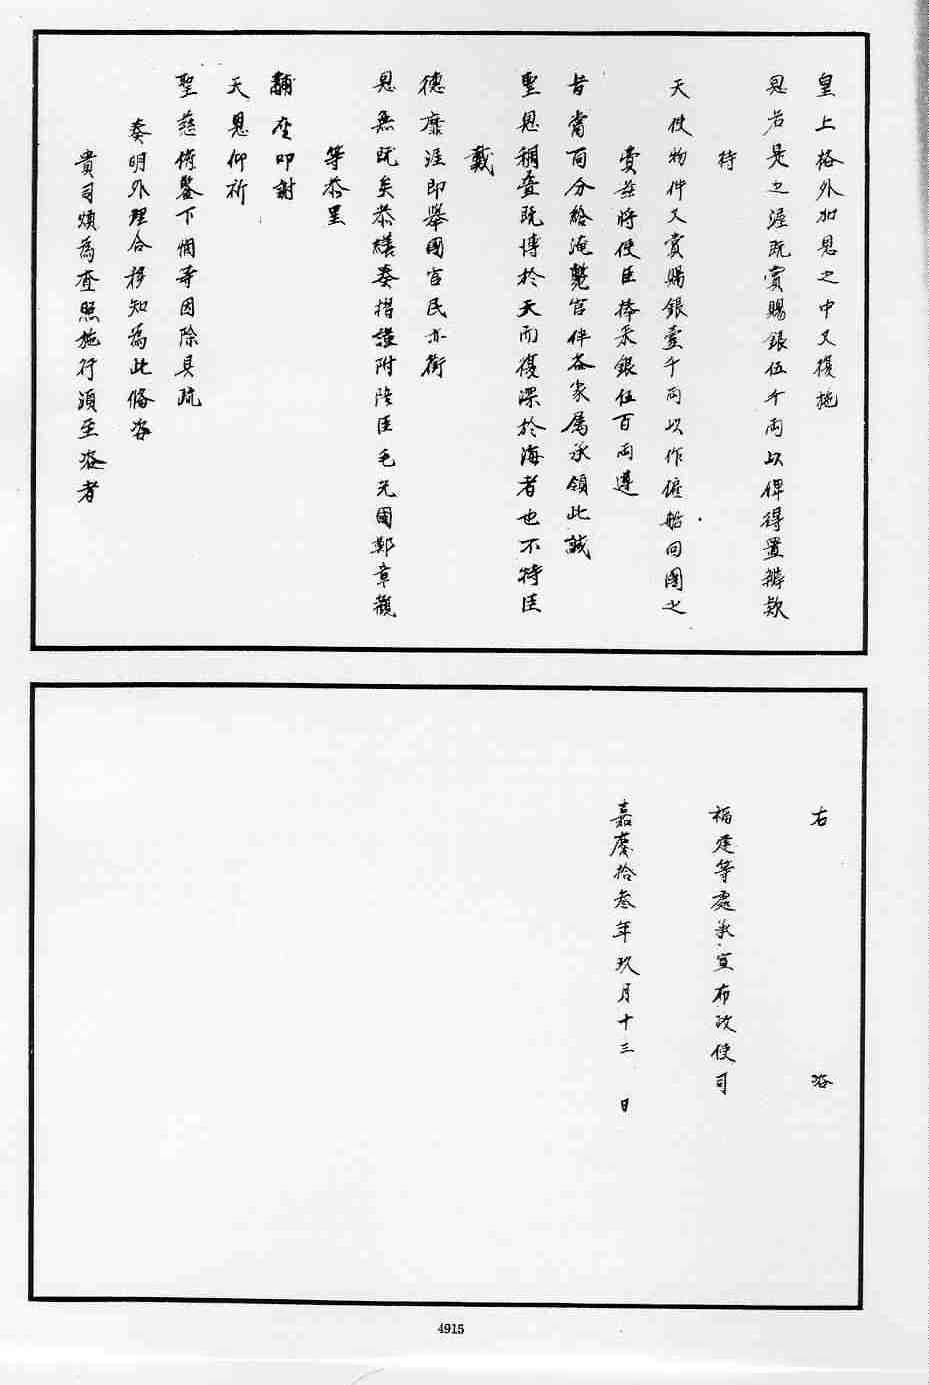 皇上格外加恩之中又復施
恩若是之渥既賞賜銀伍千兩以俾得置辦款
待
天使物件又賞賜銀壹千兩以作僱船回國之
費茲將使臣捧來銀伍百兩遵
旨當面分給淹斃官伴各家屬承領此誠
聖恩稠疊既博於天而復深於海者也不特臣
戴
德靡涯即舉國官民亦銜
恩無既矣恭繕奏摺謹附陪臣毛光國鄭章觀
等恭呈
黼座叩謝
天恩仰祈
聖慈俯鑒下悃等因除具疏
奏明外理合移知為此備咨
貴司煩為查照施行須至咨者
右 咨
福建等處承宣布政使司
嘉慶拾叁年玖月十三 日
4915